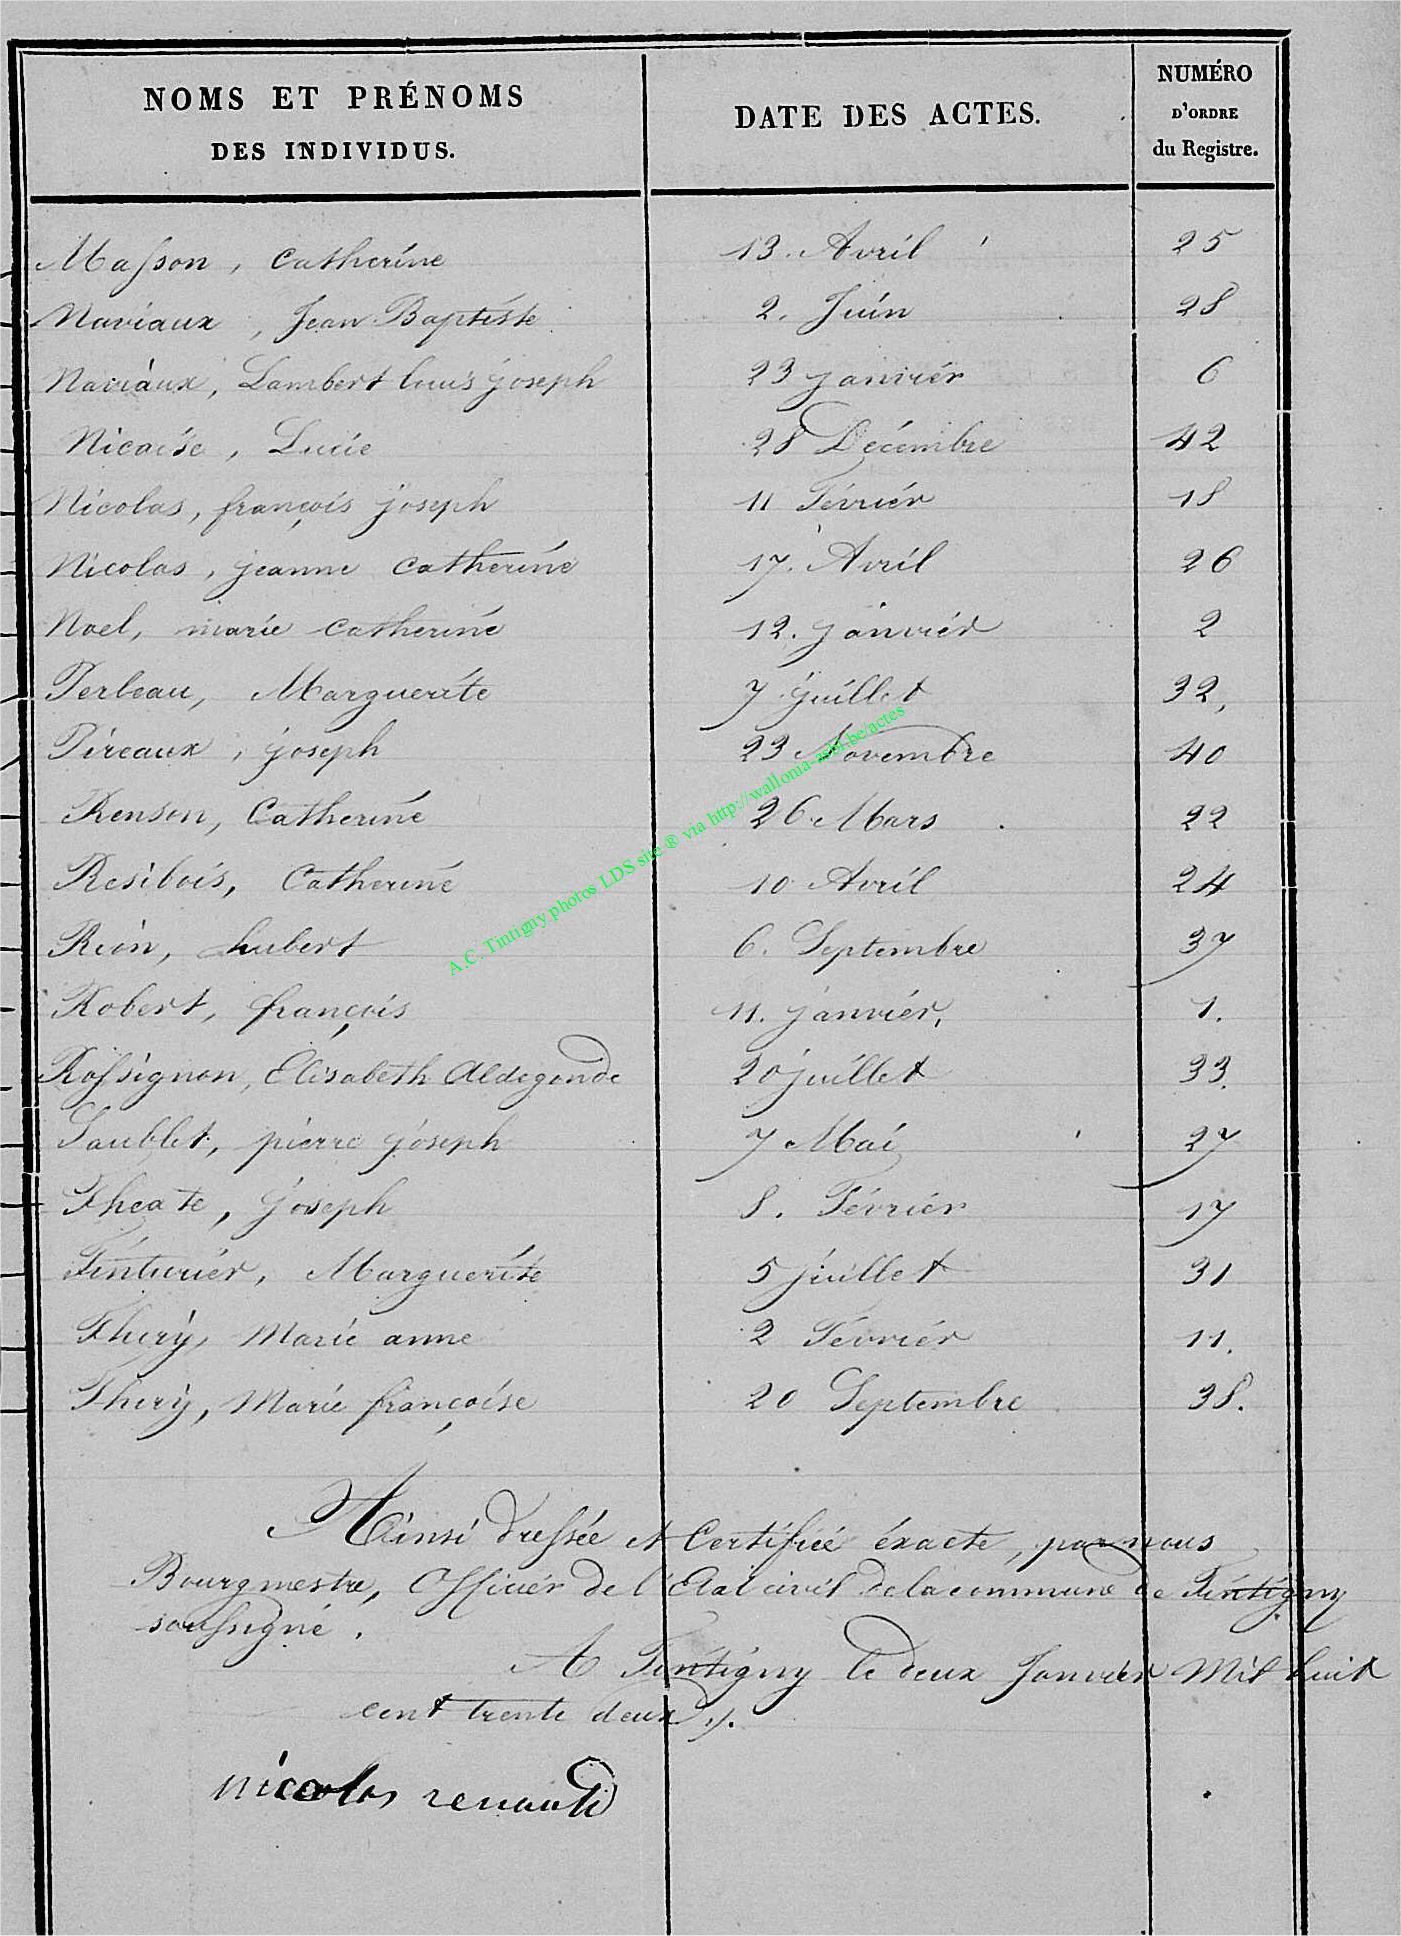 NOMS ET PRÉNOMS
DES INDIVIDUS.
DATE DES ACTES.
NUMÉRO
D'ORDRE
du Registre.
Masson, Catherine 13. Avril 25
Naviaux, Jean Baptiste 2. Juin 28
Naviaux, Lambert louis joseph 23 janvier 6
Nicaise, Lucie 28 Décembre 42
Nicolas, françois joseph 11 Février 18
Nicolas, jeanne catherine 17. Avril 26
Noel, marie catherine 12. janvier 2
Perleau, Marguerite 7 juillet 32,
Pireaux, joseph 23 Novembre 40
Renson, Catherine 26 Mars 22
Resibois, Catherine 10 Avril 24
Rion, hubert 6. Septembre 37
Robert, françois 11. janvier, 1.
Rossignon, Elisabeth Aldegonde 20 juillet 33.
Saublet, pierre joseph 7 Mai 27
Theate, joseph 8. Février 17
Tinturier, Marguerite 5 juillet 31
Thiry, Marie anne 2 Février 11.
Thiry, Marie françoise 20 Septembre 38.
Ainsi dressée et Certifiée éxacte, par nous
Bourgmestre, Officier de l'Etat civil de la commune de Tintigny
soussigné.
A Tintigny le deux Janvier Mil huit
cent trente deux ./.
nicolas renauld
A.C. Tintigny photos LDS site ® via http://wallonia-asbl.be/actes